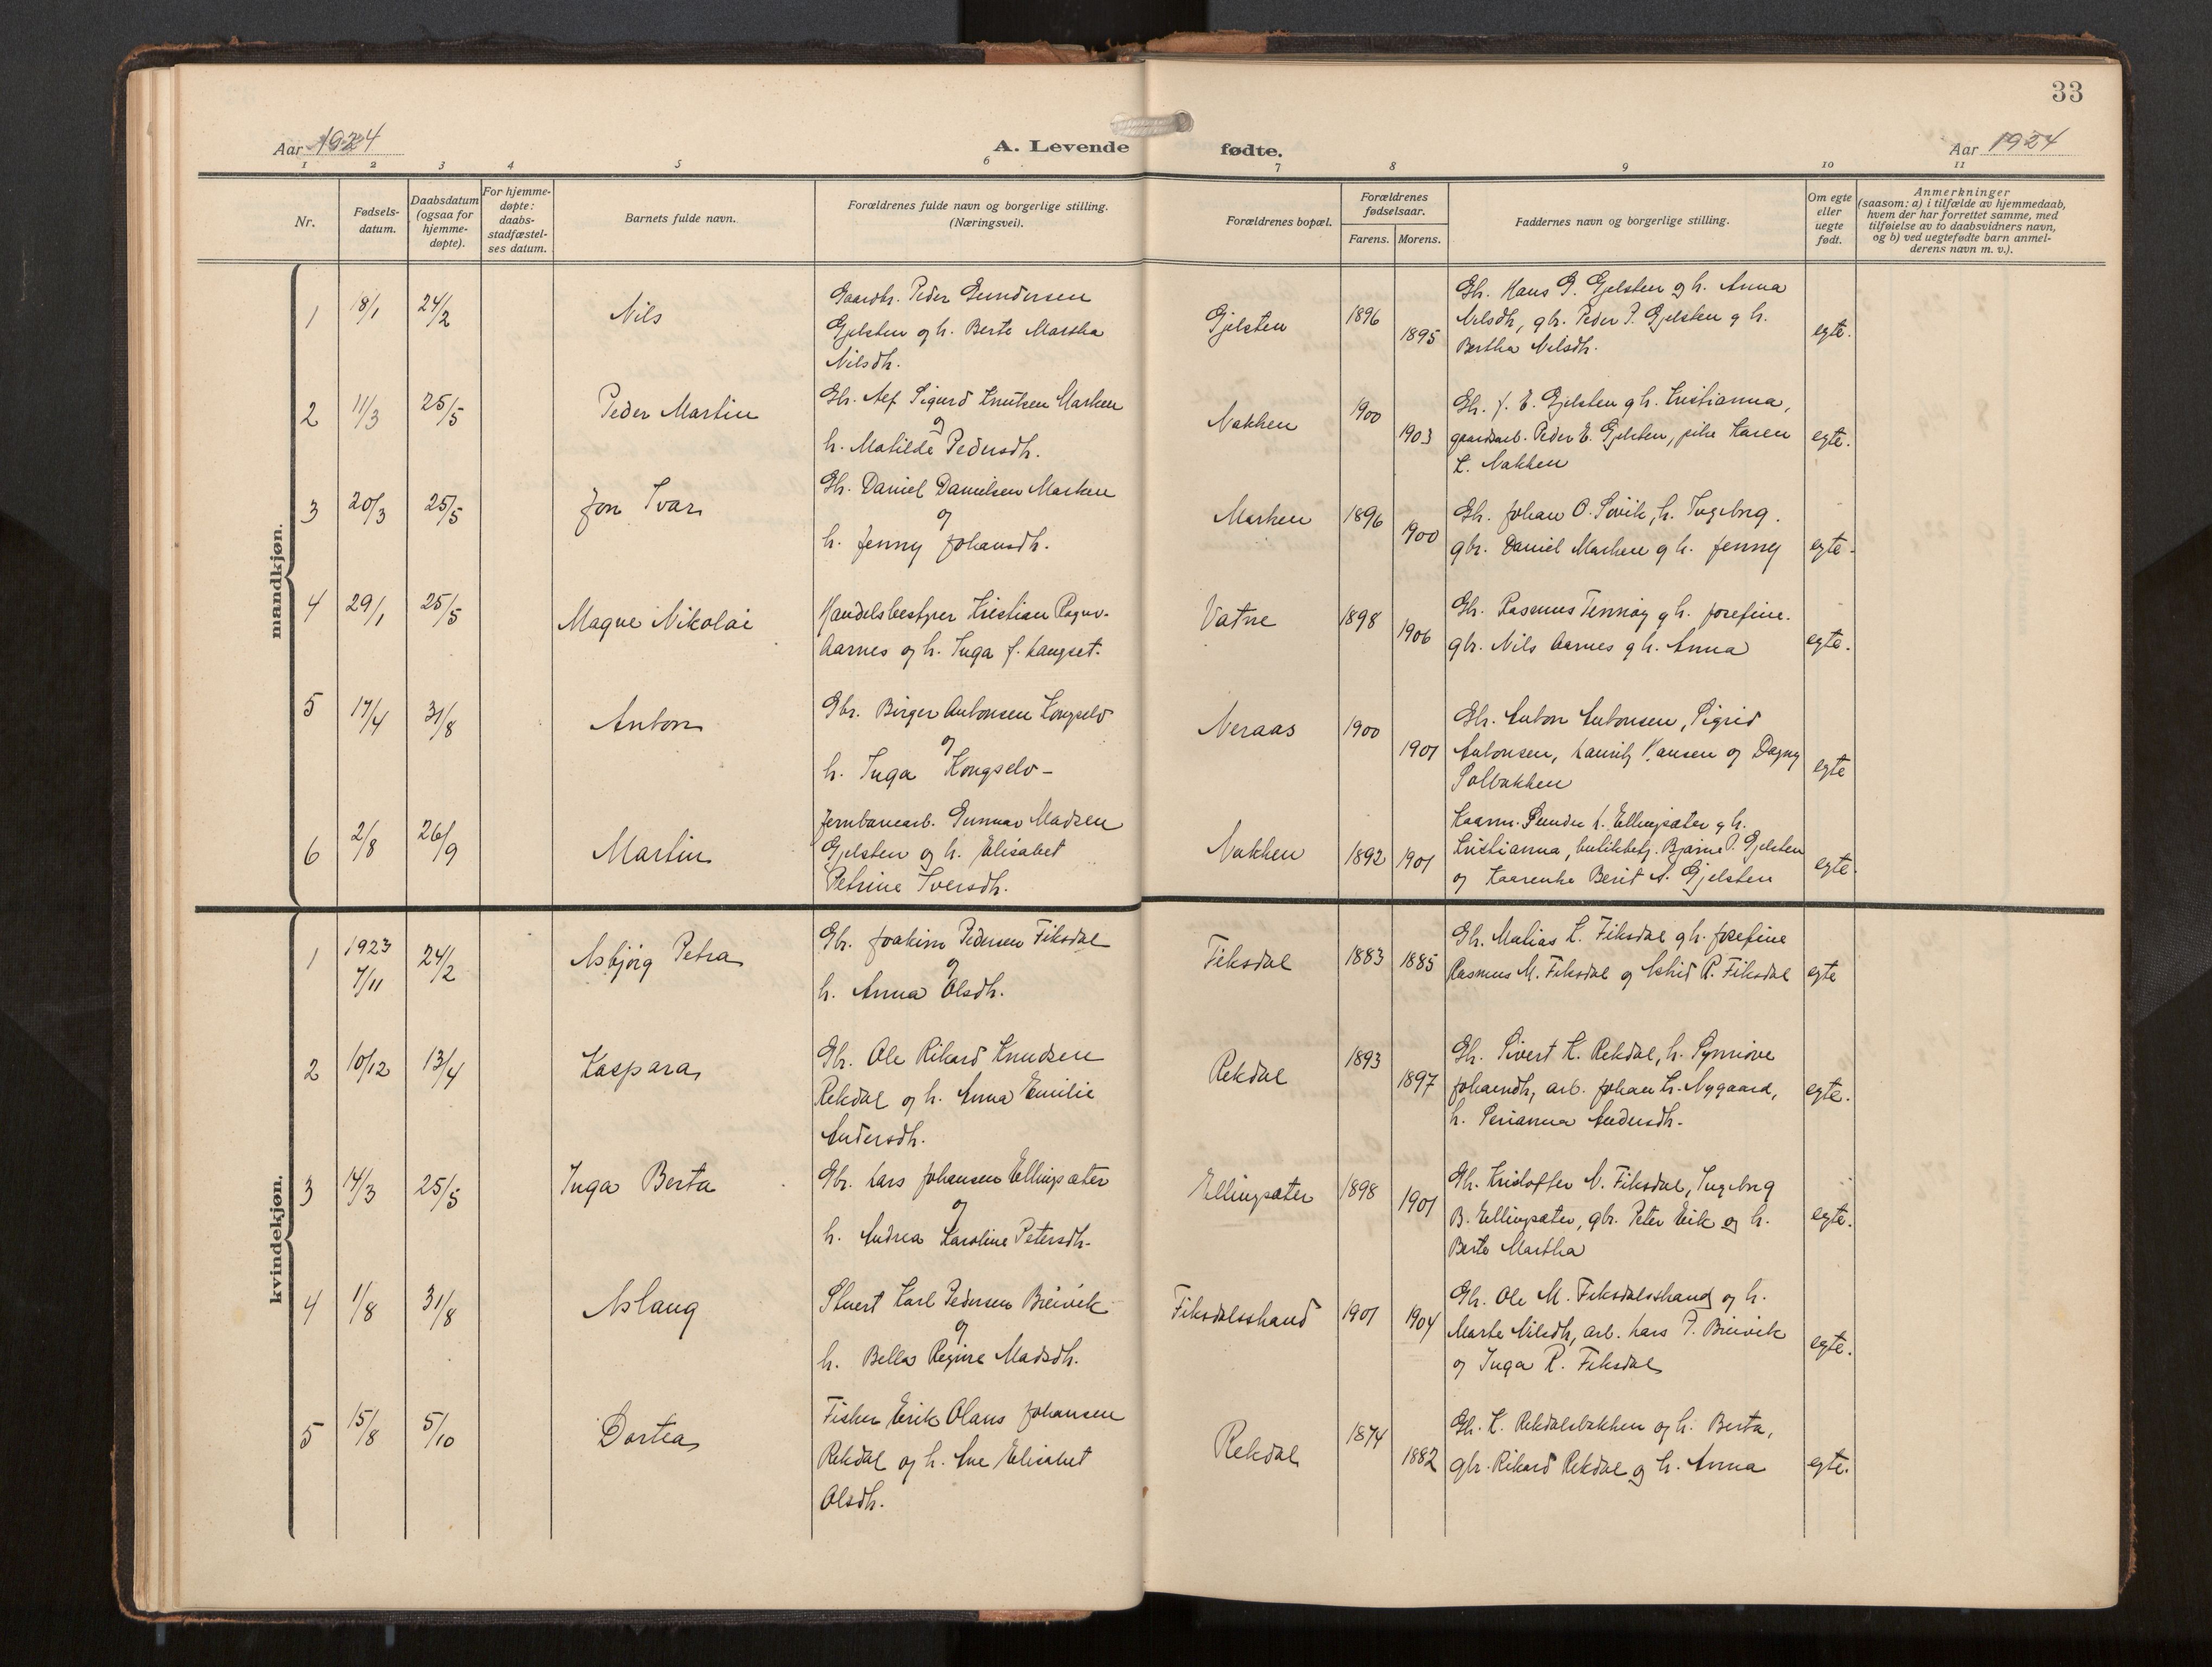 33
Aar 1924
A. Levende fødte.
Aar 1924
1 2 3 4 5 6 7 8 9 10 11
Nr.
Fødsels-
datum.
Daabsdatum
(ogsaa for
hjemme-
døpte).
For hjemme-
døpte:
daabs-
stadfæstel-
ses datum.
Barnets fulde navn.
Forældrenes fulde navn og borgerlige stilling.
(Næringsvei).
Forældrenes bopæl.
Forældrenes
fødselsaar.
Farens. Morens.
Faddernes navn og borgerlige stilling.
Om egte
eller
uegte
født.
Anmerkninger
(saasom: a) i tilfælde av hjemmedaab,
hvem der har forrettet samme, med
tilføielse av to daabsvidners navn,
og b) ved uegtefødte barn anmel-
derens navn m. v.).
mandkjøn.
1 18/1 24/2 Nils
Gaardbr. Peder Gundersen
Gjelsten og h. Berte Martha
Nilsdh.
Gjelsten 1896 1895
Gbr. Hans G. Gjelsten og h. Anna
Nilsdh, gbr. Peder J. Gjelsten g h.
Bertha Nilsdh.
egte.
2 11/3 25/5 Peder Martin
Gbr. Alf Sigurd Knutsen Marken
og
h. Matilde Pedersdh.
Nakken 1900 1903
Gbr. J. E. Gjelsten g h. Kristianna,
gaardsarb. Peder E. Gjelsten, pike Karen
K. Nakken
egte.
3 20/3 25/5 Jon Ivar
Gbr. Daniel Danielsen Marken
og
h. Jenny Johansdh.
Marken 1896 1900
Gbr. Johan O. Søvik, h. Ingeborg.
gbr. Daniel Marken g h. Jenny
egte.
4 29/1 25/5 Magne Nikolai
Handelsbestyrer Kristian Ragnv.
Aarnes og h. Inga f. Langset.
Vatne 1898 1906
Gbr. Rasmus Tennøy g h. Josefine.
gbr. Nils Aarnes g h. Anna
egte.
5 17/4 31/8 Anton
Gbr. Birger Antonsen Kongselv
og
h. Inga Kongselv-
Neraas 1900 1901
Gbr. Anton Antonsen, Sigrid
Antonsen, Lauritz Hansen og Dagny
Solbakken
egte
6 2/8 26/9 Martin
Jernbanearb. Gunnar Madsen
Gjelsten og h. Elisabet
Petrine Iversdh.
Nakken 1892 1901
Kaarm. Gunder L. Ellingsæter g h.
Kristianna, butikbetj. Bjarne P. Gjelsten
og Kaarenke Berit A. Gjelsten
egte.
kvindekjøn.
1 1923 7/11 24/2 Asbjørg Petra
Gbr. Joakim Pedersen Fiksdal
og
h. Anna Olsdh.
Fiksdal 1883 1885
Gbr. Matias K. Fiksdal g h. Josefine
Rasmus M. Fiksdal og Astrid R. Fiksdal
egte
2 10/12 13/4 Kaspara
Gbr. Ole Rikard Knudsen
Rekdal og h. Anna Emilie
Andersdh.
Rekdal 1893 1897
Gbr. Sivert K. Rekdal, h. Synnøve
Johansdh, arb. Johan L. Nygaard,
h. Perianna Andersdh.
egte.
3 14/3 25/5 Inga Berta
Gbr. Lars Johansen Ellingsæter
og
h. Andrea Karoline Petersdh.
Ellingsæter 1898 1901
Gbr. Kristoffer N. Fiksdal, Ingeborg
B. Ellingsæter, gbr. Peter Eik og h.
Berte Martha
egte.
4 1/8 31/8 Aslaug
Stuert Karl Pedersen Breivik
og
h. Bella Regine Madsdh.
Fiksdalsstrand 1901 1904
Gbr. Ole M. Fiksdalsstrand og h.
Marte Nilsdh, arb. Lars P. Breivik
og Inga R. Fiksdal
egte.
5 15/8 5/10 Dortea
Fisker Erik Olaus Johansen
Rekdal og h. Ane Elisabet
Olsdh.
Rekdal 1874 1882
Gbr. K. Rekdalsbakken og h. Berta,
gbr. Rikard Rekdal og h. Anna
egte.